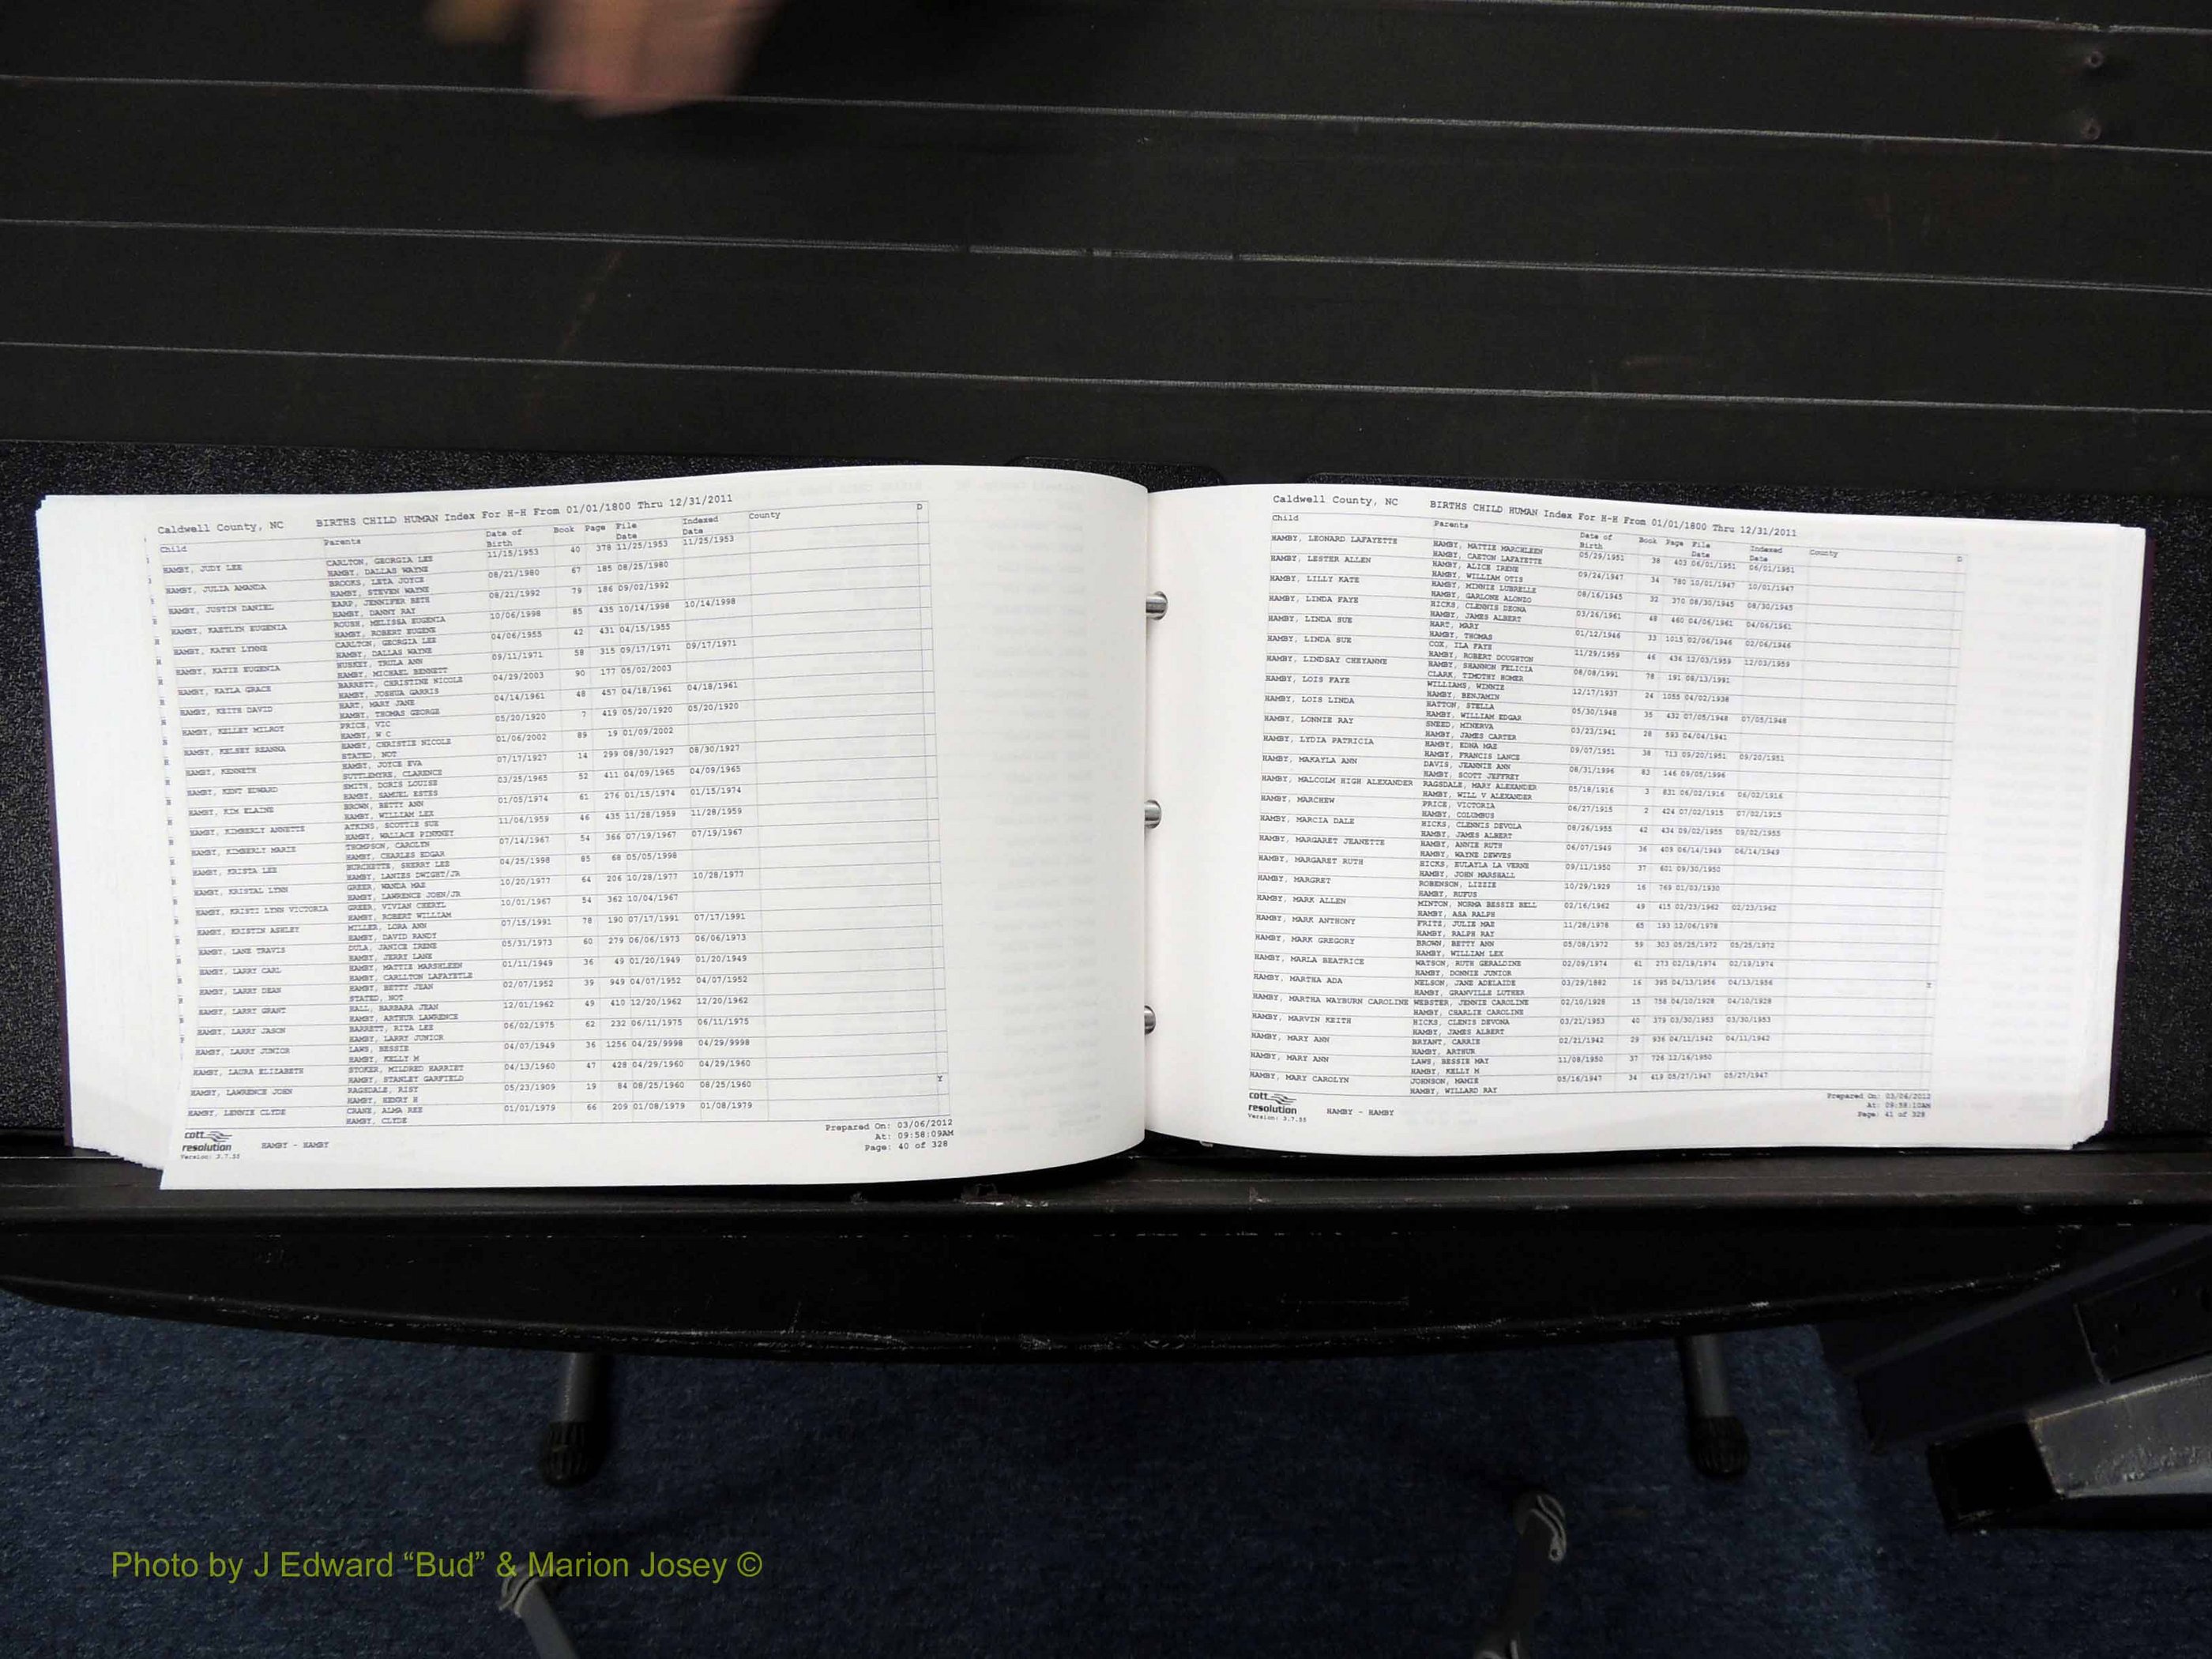 Caldwell County, NC BIRTHS CHILD HUMAN Index For H-H From 01/01/1800 Thru 12/31/2011
Child Parents Date of Birth Book Page File Date Indexed Date County D
HAMBY, JUDY LEE CARLTON, GEORGIA LEE 11/15/1953 40 378 11/25/1953 11/25/1953
HAMBY, DALLAS WAYNE
HAMBY, JULIA AMANDA BROOKS, LETA JOYCE 08/21/1980 67 185 08/25/1980
HAMBY, STEVEN WAYNE
HAMBY, JUSTIN DANIEL EARP, JENNIFER BETH 08/21/1992 79 186 09/02/1992
HAMBY, DANNY RAY
HAMBY, KAETLYN EUGENIA ROUSH, MELISSA EUGENIA 10/06/1998 85 435 10/14/1998 10/14/1998
HAMBY, ROBERT EUGENE
HAMBY, KATHY LYNNE CARLTON, GEORGIA LEE 04/06/1955 42 431 04/15/1955
HAMBY, DALLAS WAYNE
HAMBY, KATIE EUGENIA HUSKEY, TRULA ANN 09/11/1971 58 315 09/17/1971 09/17/1971
HAMBY, MICHAEL BENNETT
HAMBY, KAYLA GRACE BARRETT, CHRISTINE NICOLE 04/29/2003 90 177 05/02/2003
HAMBY, JOSHUA GARRIS
HAMBY, KEITH DAVID HART, MARY JANE 04/14/1961 48 457 04/18/1961 04/18/1961
HAMBY, THOMAS GEORGE
HAMBY, KELLEY MILROY PRICE, VIC 05/20/1920 7 419 05/20/1920 05/20/1920
HAMBY, W C
HAMBY, KELSEY REANNA HAMBY, CHRISTIE NICOLE 01/06/2002 89 19 01/09/2002
STATED, NOT
HAMBY, KENNETH HAMBY, JOYCE EVA 07/17/1927 14 299 08/30/1927 08/30/1927
SUTTLEMYRE, CLARENCE
HAMBY, KENT EDWARD SMITH, DORIS LOUISE 03/25/1965 52 411 04/09/1965 04/09/1965
HAMBY, SAMUEL ESTES
HAMBY, KIM ELAINE BROWN, BETTY ANN 01/05/1974 61 276 01/15/1974 01/15/1974
HAMBY, WILLIAM LEX
HAMBY, KIMBERLY ANNETTE ATKINS, SCOTTIE SUE 11/06/1959 46 435 11/28/1959 11/28/1959
HAMBY, WALLACE PINKNEY
HAMBY, KIMBERLY MARIE THOMPSON, CAROLYN 07/14/1967 54 366 07/19/1967 07/19/1967
HAMBY, CHARLES EDGAR
HAMBY, KRISTA LEE BURCHETTE, SHERRY LEE 04/25/1998 85 68 05/05/1998
HAMBY, LANIES DWIGHT/JR
HAMBY, KRISTAL LYNN GREER, WANDA MAE 10/20/1977 64 206 10/28/1977 10/28/1977
HAMBY, LAWRENCE JOHN/JR
HAMBY, KRISTI LYNN VICTORIA GREER, VIVIAN CHERYL 10/01/1967 54 362 10/04/1967
HAMBY, ROBERT WILLIAM
HAMBY, KRISTIN ASHLEY MILLER, LORA ANN 07/15/1991 78 190 07/17/1991 07/17/1991
HAMBY, DAVID RANDY
HAMBY, LANE TRAVIS DULA, JANICE IRENE 05/31/1973 60 279 06/06/1973 06/06/1973
HAMBY, JERRY LANE
HAMBY, LARRY CARL HAMBY, MATTIE MARSHLEEN 01/11/1949 36 49 01/20/1949 01/20/1949
HAMBY, CARLLTON LAFAYETLE
HAMBY, LARRY DEAN HAMBY, BETTY JEAN 02/07/1952 39 949 04/07/1952 04/07/1952
STATED, NOT
HAMBY, LARRY GRANT HALL, BARBARA JEAN 12/01/1962 49 410 12/20/1962 12/20/1962
HAMBY, ARTHUR LAWRENCE
HAMBY, LARRY JASON BARRETT, RITA LEE 06/02/1975 62 232 06/11/1975 06/11/1975
HAMBY, LARRY JUNIOR
HAMBY, LARRY JUNIOR LAWS, BESSIE 04/07/1949 36 1256 04/29/9998 04/29/9998
HAMBY, KELLY M
HAMBY, LAURA ELIZABETH STOKER, MILDRED HARRIET 04/13/1960 47 428 04/29/1960 04/29/1960
HAMBY, STANLEY GARFIELD
HAMBY, LAWRENCE JOHN RAGSDALE, RISY 05/23/1909 19 84 08/25/1960 08/25/1960 Y
HAMBY, HENRY H
HAMBY, LENNIE CLYDE CRANE, ALMA REE 01/01/1979 66 209 01/08/1979 01/08/1979
HAMBY, CLYDE
cott resolution HAMBY - HAMBY
Version: 3.7.55
Prepared On: 03/06/2012
At: 09:58:09AM
Page: 40 of 328
Caldwell County, NC BIRTHS CHILD HUMAN Index For H-H From 01/01/1800 Thru 12/31/2011
Child Parents Date of Birth Book Page File Date Indexed Date County D
HAMBY, LEONARD LAFAYETTE HAMBY, MATTIE MARCHLEEN 05/29/1951 38 403 06/01/1951 06/01/1951
HAMBY, CAETON LAFAYETTE
HAMBY, LESTER ALLEN HAMBY, ALICE IRENE 09/24/1947 34 780 10/01/1947 10/01/1947
HAMBY, WILLIAM OTIS
HAMBY, LILLY KATE HAMBY, MINNIE LUBRELLE 08/16/1945 32 370 08/30/1945 08/30/1945
HAMBY, GARLONE ALONZO
HAMBY, LINDA FAYE HICKS, CLENNIS DEONA 03/26/1961 48 460 04/06/1961 04/06/1961
HAMBY, JAMES ALBERT
HAMBY, LINDA SUE HART, MARY 01/12/1946 33 1015 02/06/1946 02/06/1946
HAMBY, THOMAS
HAMBY, LINDA SUE COX, ILA FAYE 11/29/1959 46 436 12/03/1959 12/03/1959
HAMBY, ROBERT DOUGHTON
HAMBY, LINDSAY CHEYANNE HAMBY, SHANNON FELICIA 08/08/1991 78 191 08/13/1991
CLARK, TIMOTHY HOMER
HAMBY, LOIS FAYE WILLIAMS, WINNIE 12/17/1937 24 1055 04/02/1938
HAMBY, BENJAMIN
HAMBY, LOIS LINDA HATTON, STELLA 05/30/1948 35 432 07/05/1948 07/05/1948
HAMBY, WILLIAM EDGAR
HAMBY, LONNIE RAY SNEED, MINERVA 03/23/1941 28 593 04/04/1941
HAMBY, JAMES CARTER
HAMBY, LYDIA PATRICIA HAMBY, EDNA MAE 09/07/1951 38 713 09/20/1951 09/20/1951
HAMBY, FRANCIS LANCE
HAMBY, MAKAYLA ANN DAVIS, JEANNIE ANN 08/31/1996 83 146 09/05/1996
HAMBY, SCOTT JEFFREY
HAMBY, MALCOLM HIGH ALEXANDER RAGSDALE, MARY ALEXANDER 05/18/1916 3 831 06/02/1916 06/02/1916
HAMBY, WILL V ALEXANDER
HAMBY, MARCHEW PRICE, VICTORIA 06/27/1915 2 424 07/02/1915 07/02/1915
HAMBY, COLUMBUS
HAMBY, MARCIA DALE HICKS, CLENNIS DEVOLA 08/26/1955 42 434 09/02/1955 09/02/1955
HAMBY, JAMES ALBERT
HAMBY, MARGARET JEANETTE HAMBY, ANNIE RUTH 06/07/1949 36 409 06/14/1949 06/14/1949
HAMBY, WAYNE DEWVES
HAMBY, MARGARET RUTH HICKS, EULAYLA LA VERNE 09/11/1950 37 601 09/30/1950
HAMBY, JOHN MARSHALL
HAMBY, MARGRET ROBENSON, LIZZIE 10/29/1929 16 769 01/03/1930
HAMBY, RUFUS
HAMBY, MARK ALLEN MINTON, NORMA BESSIE BELL 02/16/1962 49 415 02/23/1962 02/23/1962
HAMBY, ASA RALPH
HAMBY, MARK ANTHONY FRITZ, JULIE MAE 11/28/1978 65 193 12/06/1978
HAMBY, RALPH RAY
HAMBY, MARK GREGORY BROWN, BETTY ANN 05/08/1972 59 303 05/25/1972 05/25/1972
HAMBY, WILLIAM LEX
HAMBY, MARLA BEATRICE WATSON, RUTH GERALDINE 02/09/1974 61 273 02/19/1974 02/19/1974
HAMBY, DONNIE JUNIOR
HAMBY, MARTHA ADA NELSON, JANE ADELAIDE 03/29/1882 16 395 04/13/1956 04/13/1956 Y
HAMBY, GRANVILLE LUTHER
HAMBY, MARTHA WAYBURN CAROLINE WEBSTER, JENNIE CAROLINE 02/10/1928 15 758 04/10/1928 04/10/1928
HAMBY, CHARLIE CAROLINE
HAMBY, MARVIN KEITH HICKS, CLENIS DEVONA 03/21/1953 40 379 03/30/1953 03/30/1953
HAMBY, JAMES ALBERT
HAMBY, MARY ANN BRYANT, CARRIE 02/21/1942 29 936 04/11/1942 04/11/1942
HAMBY, ARTHUR
HAMBY, MARY ANN LAWS, BESSIE MAY 11/08/1950 37 726 12/16/1950
HAMBY, KELLY M
HAMBY, MARY CAROLYN JOHNSON, MAMIE 05/16/1947 34 419 05/27/1947 05/27/1947
HAMBY, WILLARD RAY
cott resolution HAMBY - HAMBY
Version: 3.7.55
Prepared On: 03/06/2012
At: 09:58:10AM
Page: 41 of 328
Photo by J Edward “Bud” & Marion Josey ©